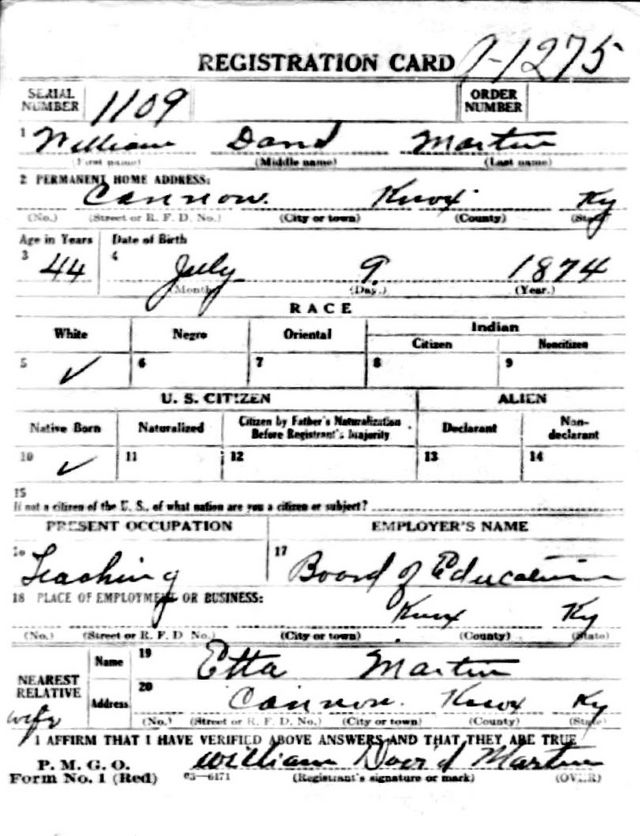 REGISTRATION CARD 1-1275
SERIAL NUMBER 1109 ORDER NUMBER
1 William David Martin
(First name) (Middle name) (Last name)
2 PERMANENT HOME ADDRESS:
Cannon. Knox Ky
(No.) (Street or R. F. D. No.) (City or town) (County) (State)
Age in Years Date of Birth
3 44 4 July 9 1874
(Month) (Day.) (Year.)
RACE
White Negro Oriental Indian
Citizen Noncitizen
5 ✓ 6 7 8 9
U. S. CITIZEN ALIEN
Native Born Naturalized Citizen by Father's Naturalization Before Registrant's Majority Declarant Non-declarant
10 ✓ 11 12 13 14
15
If not a citizen of the U. S., of what nation are you a citizen or subject?
PRESENT OCCUPATION EMPLOYER'S NAME
16 Teaching 17 Board of Education
18 PLACE OF EMPLOYMENT OR BUSINESS:
Knox Ky
(No.) (Street or R. F. D No.) (City or town) (County) (State)
NEAREST RELATIVE Name 19 Etta Martin
wife Address 20 Cannon. Knox Ky
(No.) (Street or R. F. D. No.) (City or town) (County) (State)
I AFFIRM THAT I HAVE VERIFIED ABOVE ANSWERS AND THAT THEY ARE TRUE
P. M. G. O.
Form No. 1 (Red) 03—6171 William David Martin
(Registrant's signature or mark) (OVER)